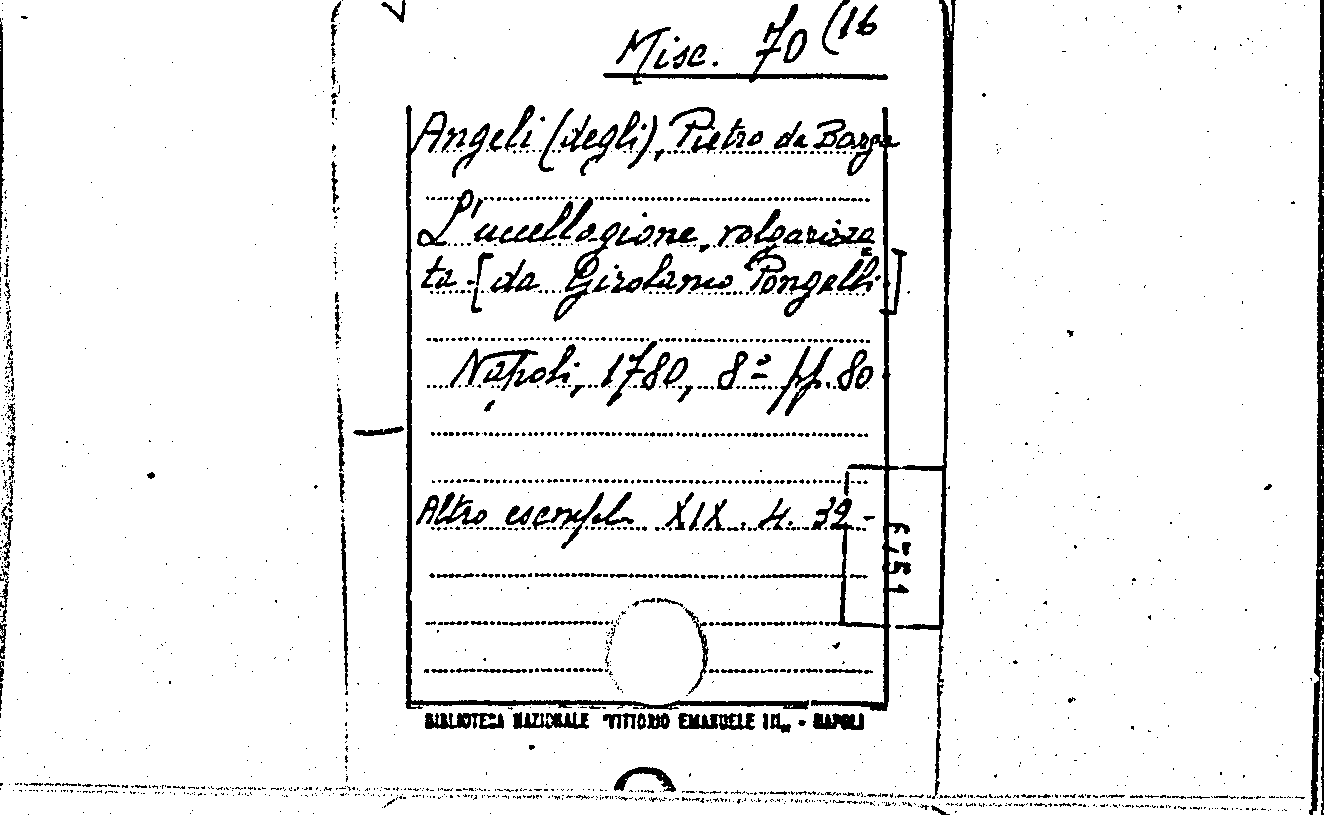 Misc. 70 (16
Angeli (degli), Pietro da Barga
L'uccellagione, volgarizza=
ta [da Girolamo Pongelli]
Napoli, 1780, 8º pp. 80
Altro esempl. XIX. 4. 32-
BIBLIOTECA NAZIONALE "VITTORIO EMANUELE III„ - NAPOLI